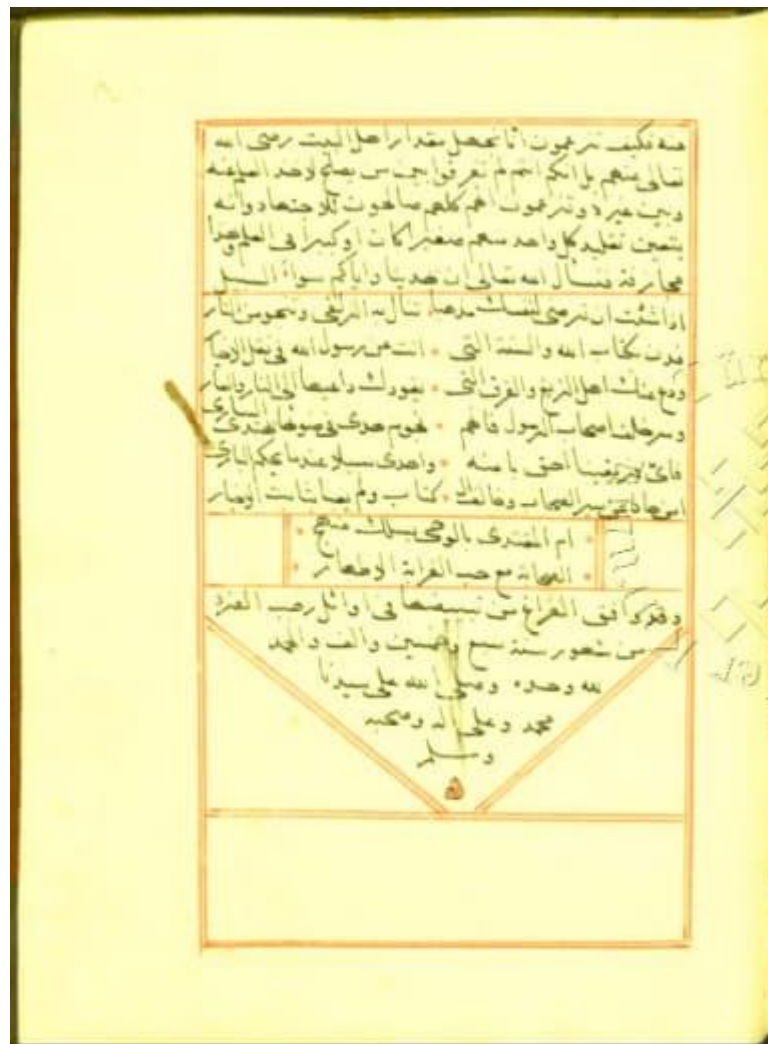 عنه فكيف تزعمون انا نجهل مقدار اهل البيت رضى الله
تعالى عنهم بل انكم انتم لم تفرقوا بين من يصلح لاخذ العلم عنه
وبين غيره وتزعمون انهم كلهم صالحون للاجتهاد وانه
يتعين تقليد كل واحد منهم صغيرا كان او كبيرا فى العلم وهذا
مجازفة فنسأل الله تعالى ان يهدينا واياكم سوآء السبيل
اذا شئت ان ترضى لنفسك مذهبا تنال به الزلفى وتنجو من النار
فدن بكتاب الله والسنة التى • اتت عن رسول الله فى نقل
ودع عنك اهل الزيغ والفرق التى • يقودك داعيها الى النار والعار
وسر خلف اصحاب الرسول فانهم • نجوم هدى فى ضوئها يهتدى السارى
فاى فريقينا احق بامنه • واهدى سبيلا عندما يحكم البارى
سب الصحاب وخالف • كتاب ولم يعبأ بثابت
ام المقتدى بالوحى يسلك منهج •
• الصحابة مع حب القرابة الاطهار •
وقد وافق الفراغ من تبييضها فى اوائل رجب الفرد
من شهور سنة سبع وخمسين والف والحمد
لله وحده وصلى الله على سيدنا
محمد وعلى اله وصحبه
وسلم